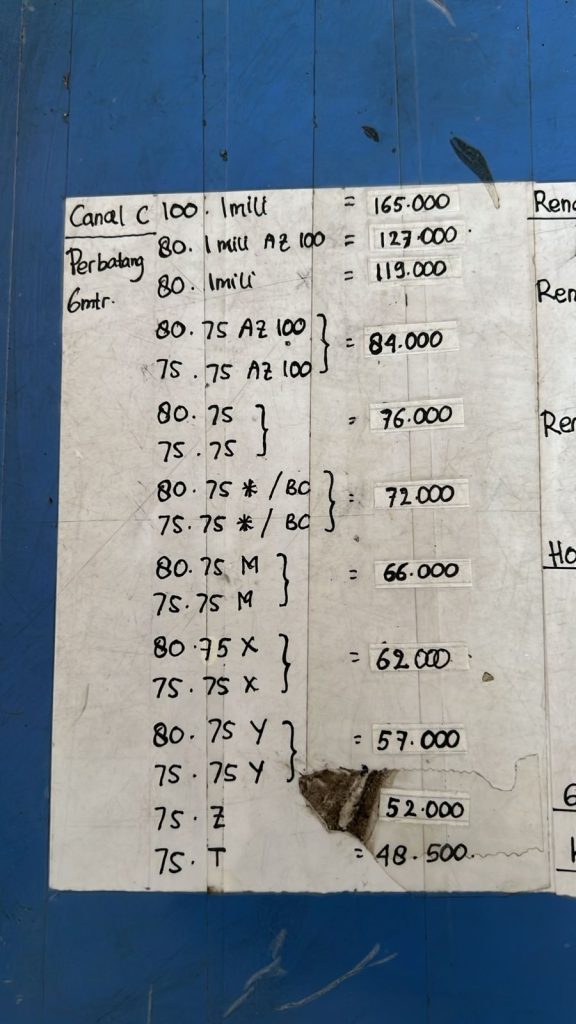 Canal C 100. 1mili = 165.000
Perbatang 80. 1mili AZ 100 = 127.000
6mtr. 80. 1mili = 119.000
80.75 AZ 100
75.75 AZ 100 } = 84.000
80.75
75.75 } = 76.000
80.75 * / BC
75.75 * / BC } = 72.000
80.75 M
75.75 M } = 66.000
80.75 X
75.75 X } = 62.000
80.75 Y
75.75 Y } = 57.000
75.Z 52.000
75.T = 48.500
Ren
Ren
Rer
Ho
6